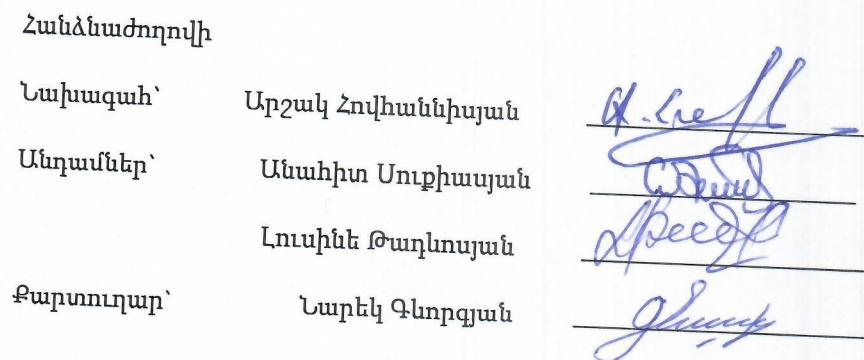 Հանձնաժողովի
Նախագահ՝ Արշակ Հովհաննիսյան
Անդամներ՝ Անահիտ Սուքիասյան
Լուսինե Թադևոսյան
Քարտուղար՝ Նարեկ Գևորգյան